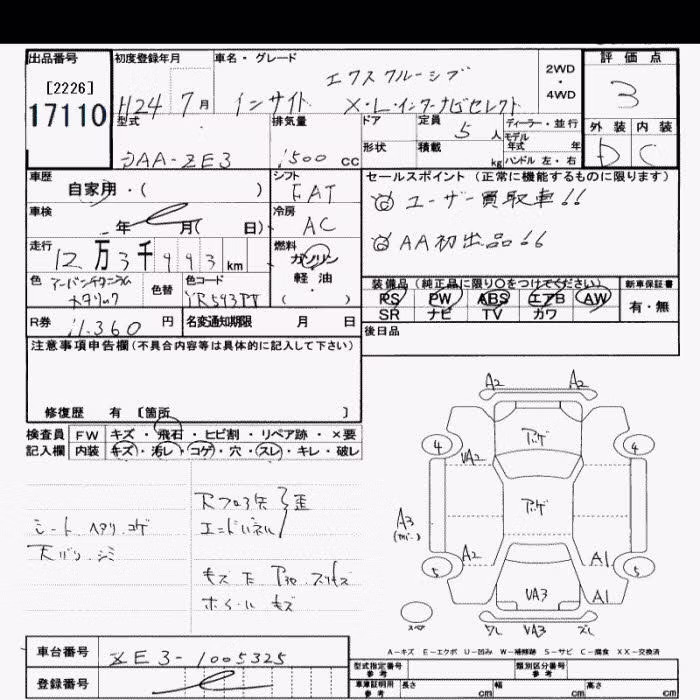 出品番号
[2226]
17110
初度登録年月
H24 7月
車名・グレード
エクスクルーシブ
インサイト X・L・インターナビセレクト
2WD
・
4WD
評価点
3
外装 内装
D C
型式
DAA-ZE3
排気量
1500 cc
ドア
形状
定員 5人
積載 kg
ディーラー・並行
モデル
年式 年
ハンドル 左・右
車歴
自家用・( )
シフト
FAT
セールスポイント (正常に機能するものに限ります)
ユーザー買取車!!
AA初出品!!
車検
年 月( 日)
冷房
AC
走行
12万3千993km
燃料
ガソリン
軽・油
( ・ )
色
アーバンチタニウム
メタリック
色替
色コード
YR593PT
装備品 (純正品に限り○をつけてください)
PS PW ABS エアB AW
SR ナビ TV カワ
新車保証書
有・無
R券 11.360 円
名変通知期限 月 日
後日品
注意事項申告欄(不具合内容等は具体的に記入して下さい)
修復歴 有 〔箇所 〕
検査員 FW キズ・飛石・ヒビ割・リペア跡・×要
記入欄 内装 キズ・汚レ・コゲ・穴・スレ・キレ・破レ
シート ヘタリ コゲ
天バリ シミ
エンドパネル
ホイール キズ
A2 A2
4 4
UA2
A3
A2 A1
5 5
UA3 A1
UA3
スペア
A-キズ E-エクボ U-凹み W-補修跡 S-サビ C-腐食 XX-交換済
車台番号 ZE3-1005325
登録番号
型式指定番号
参考
類別区分番号
参考
車庫証明用
参考
長さ cm 幅 cm 高さ cm